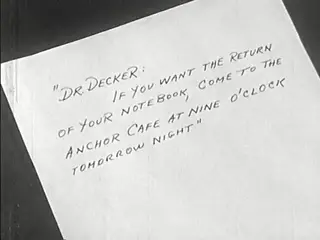 "DR DECKER:
IF YOU WANT THE RETURN
OF YOUR NOTEBOOK, COME TO THE
ANCHOR CAFE AT NINE O'CLOCK
TOMORROW NIGHT"